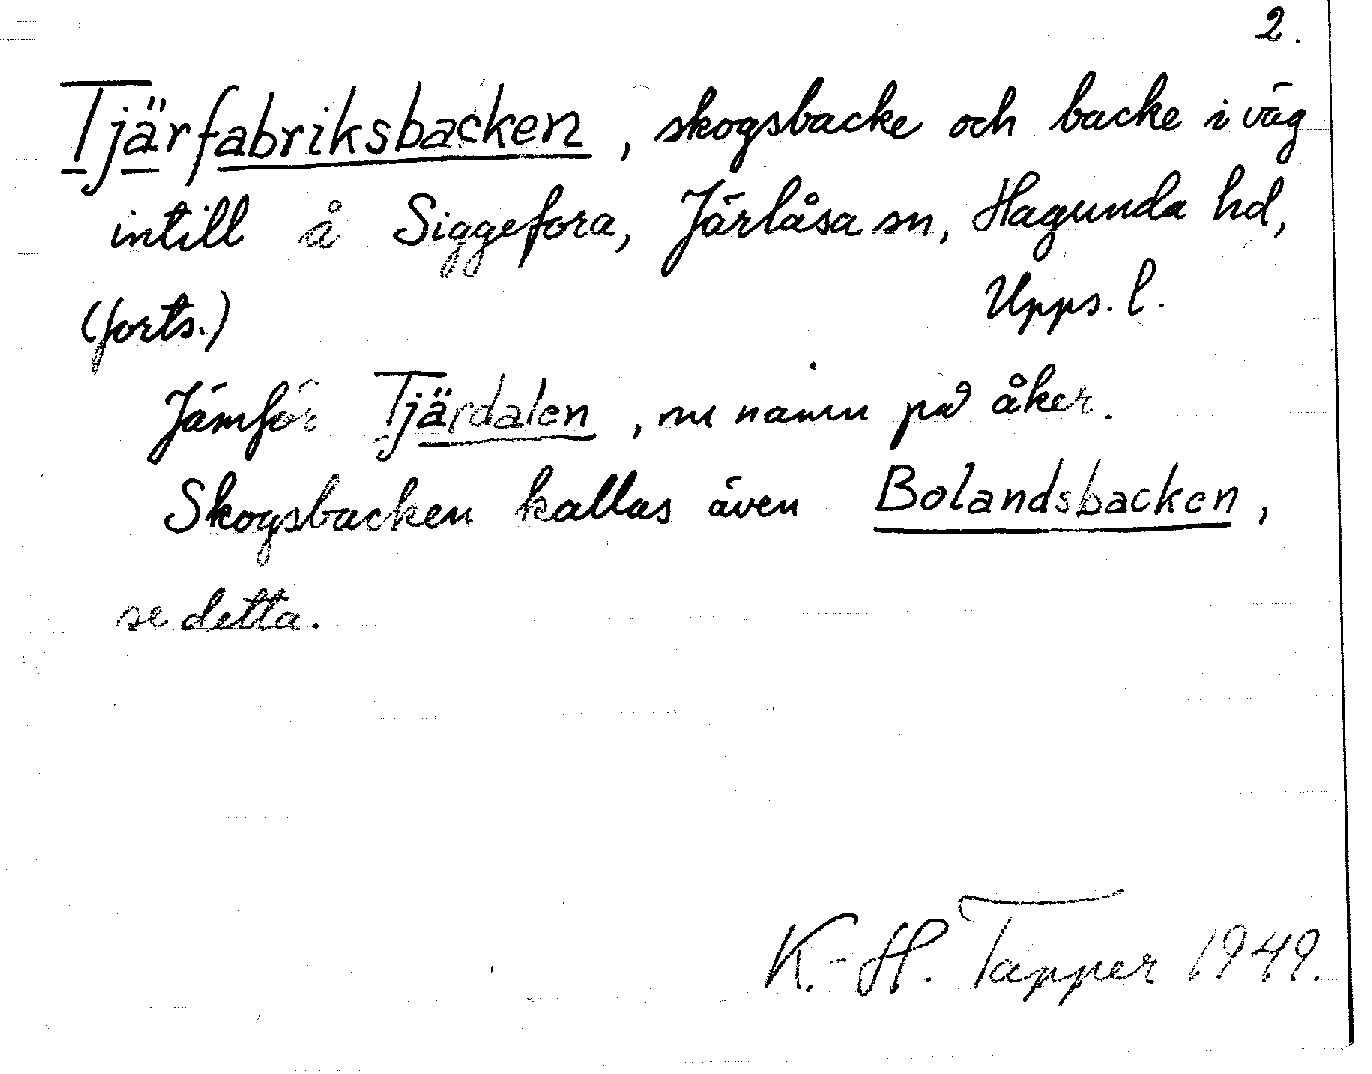 2.
Tjärfabriksbacken, skogsbacke och backe i väg
intill å Siggefora, Järlåsa sn, Hagunda hd,
(forts.) Upps. l.
Jämför Tjärdalen, nu namn på åker.
Skogsbacken kallas även Bolandsbacken,
se detta.
K.-H. Tapper 1949.